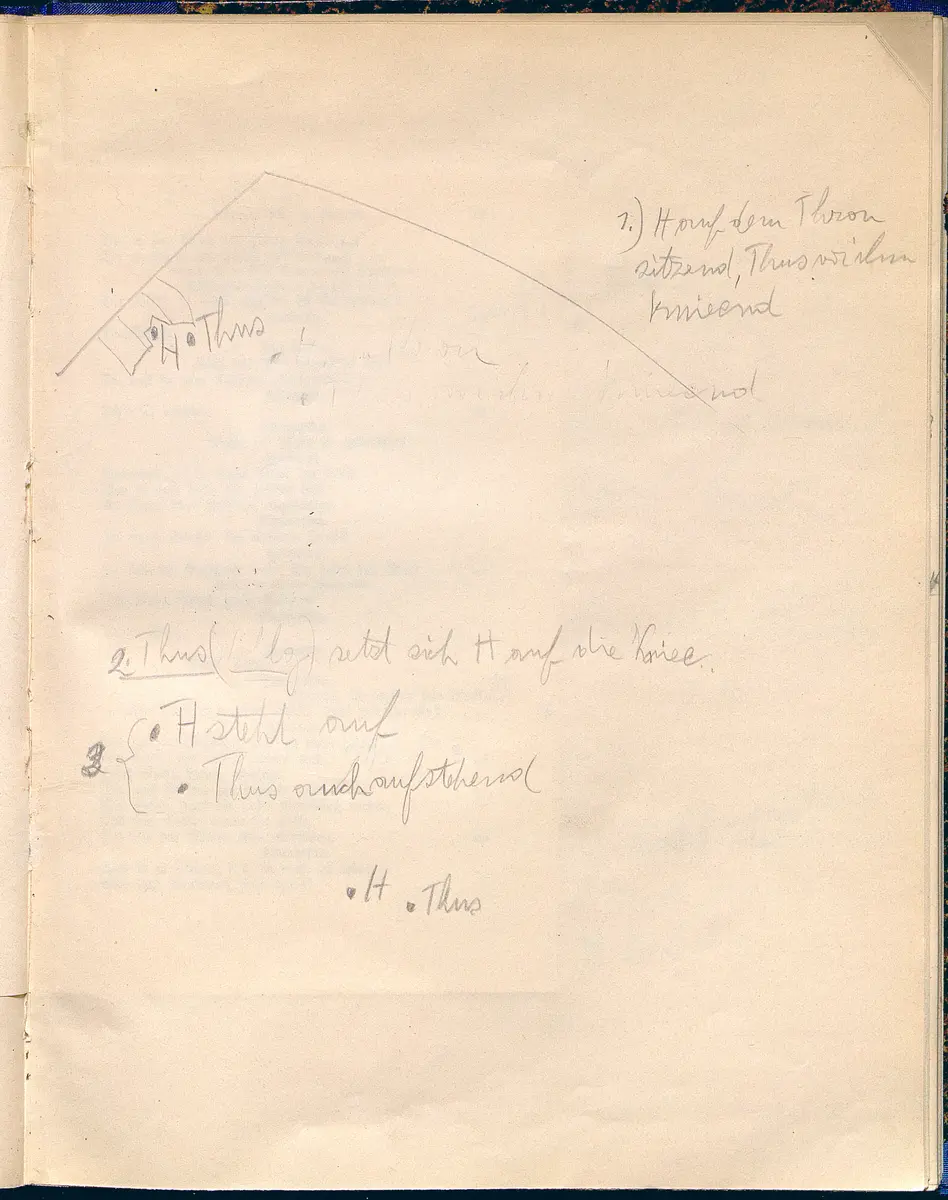 1.) H auf dem Thron
sitzend, Thus vor ihm
knieend
H Thus
H Thron
knieend
2. Thus setzt sich H auf die Kniee.
3 { H steht auf
Thus auch aufstehend
H Thus